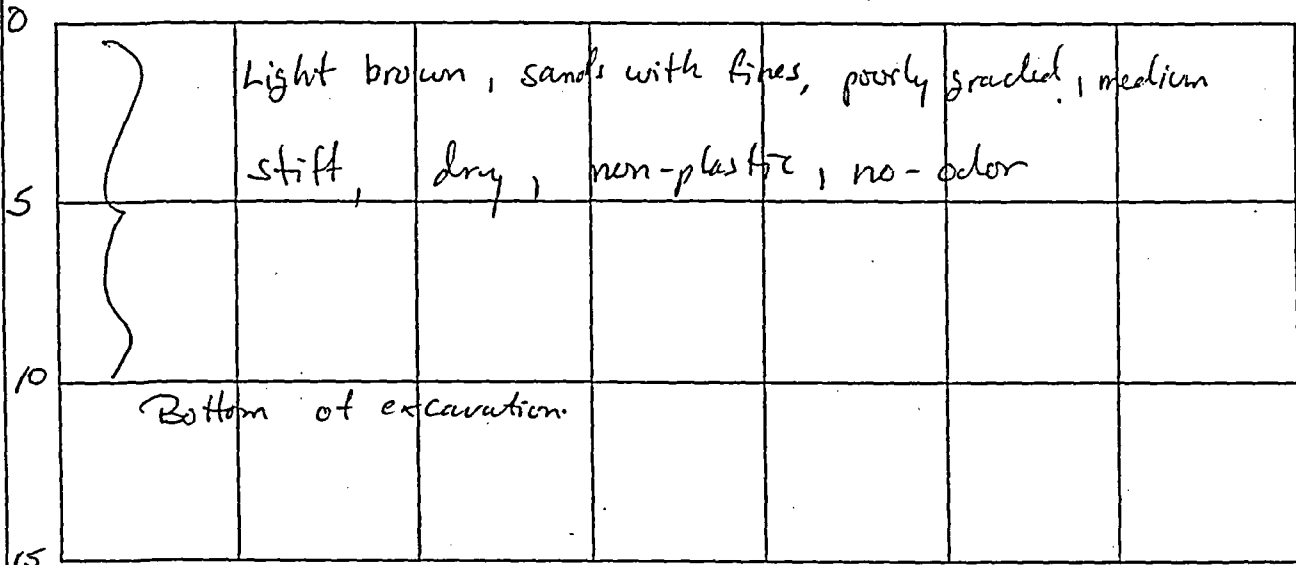 0
Light brown, sands with fines, poorly graded, medium
stiff, dry, non-plastic, no-odor
5
10
Bottom of excavation.
15